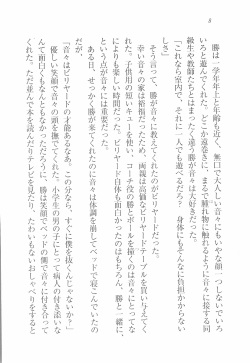 8
勝は一学年年上と年齢も近く、無口で大人しい音々にもいやな顔一つしないでい
ろいろと遊んでくれた。どこか遠巻きに、まるで腫れ物に触れるように音々に接する同
級生や教師たちとはまったく違う勝が音々は大好きだった。
「これなら室内で、それに一人でも遊べるだろ? そんなに負担かからない
しさ」
そう言って、勝が音々に教えてくれたのがビリヤードだった。
幸い音々の家は裕福だったため、両親は高価なビリヤードテーブルを買い与えてくれ
た。子供用の短いキューを使い、コーチ役の勝とボールを撞くのは音々にとってなによ
りも楽しい時間だった。ビリヤード自体も面白かったのはもちろん、勝と一緒に、
という点が音々には重要だった。
ある日、せっかく勝が来てくれたのに音々は体調を崩してベッドで寝こんでいたの
だが、
「音々はビリヤードの才能あるなあ。この分なら、すぐに僕を抜くんじゃないか?」
優しい笑顔で音々の頭を撫でてくれた。小学生の男の子にとって病人の付き添いな
んて面白くもなんともなかっただろうに、勝は笑顔でベッドの側で音々に付き添って
くれた。ただ並んで本を読んだりテレビを見たり、たわいもないおしゃべりをすると